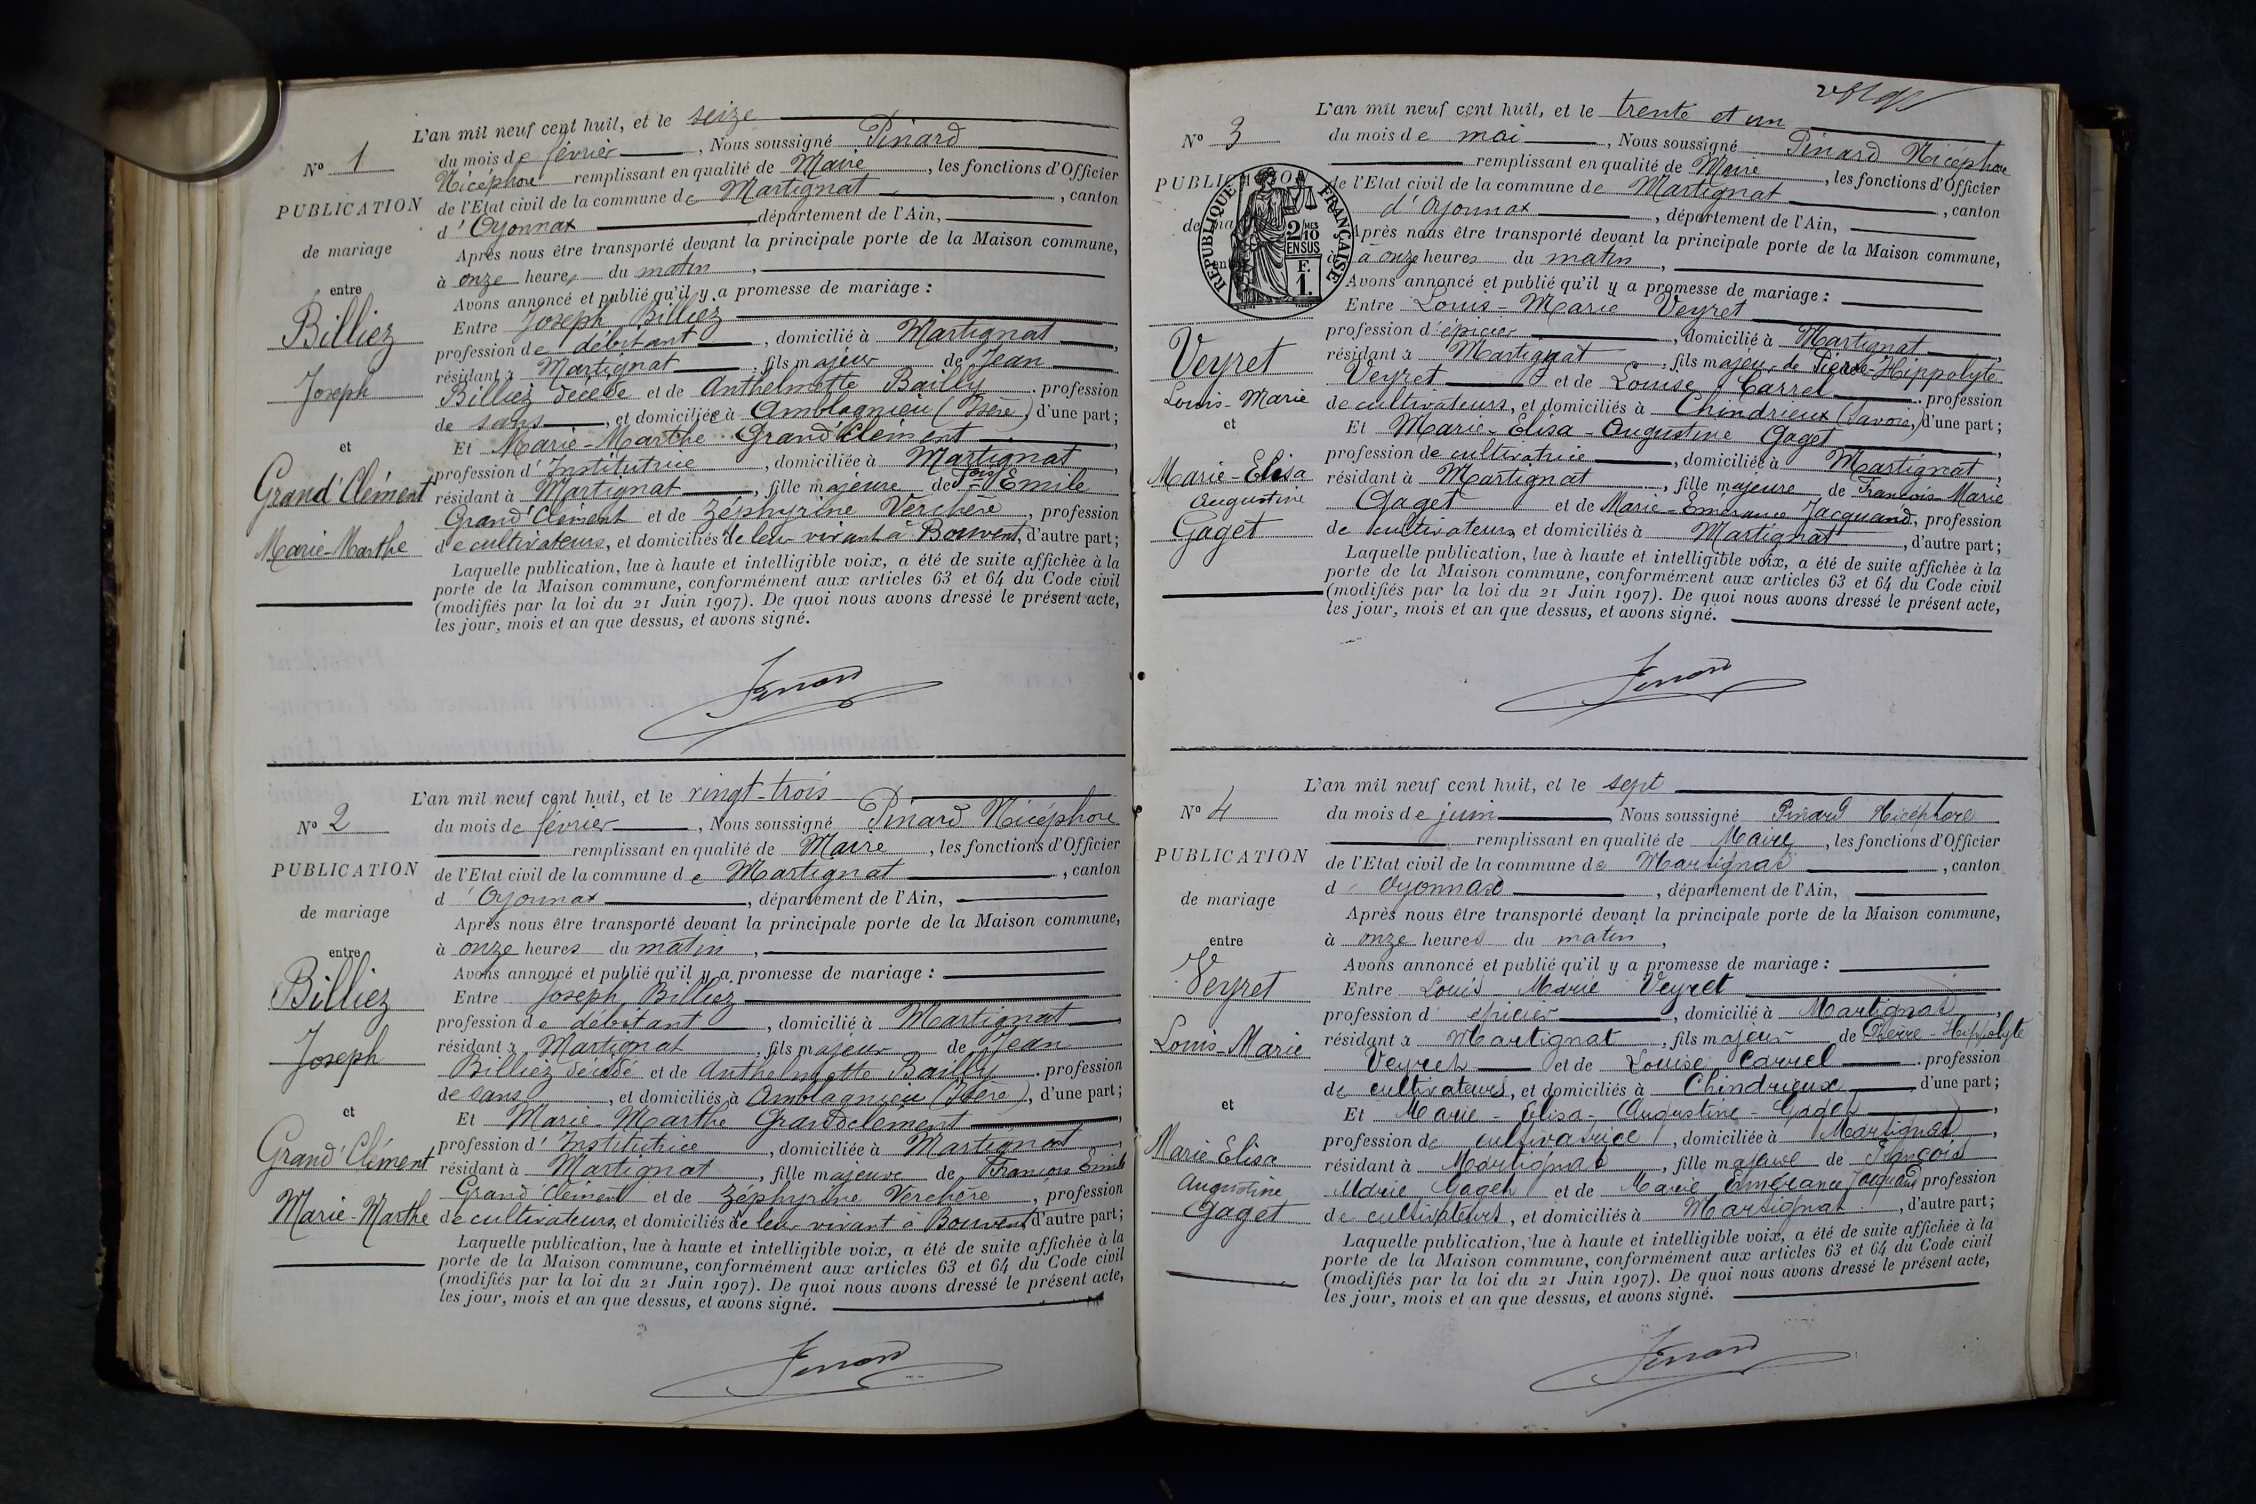 L'an mil neuf cent huit, et le seize
N° 1
du mois de février, Nous soussigné Pinard
Nicéphore remplissant en qualité de Maire, les fonctions d'Officier
PUBLICATION
de l'Etat civil de la commune de Martignat, canton
d'Oyonnax département de l'Ain,
de mariage
Après nous être transporté devant la principale porte de la Maison commune,
à onze heures du matin,
entre
Avons annoncé et publié qu'il y a promesse de mariage :
Billiez
Entre Joseph Billiez
profession de débitant, domicilié à Martignat,
Joseph
résidant à Martignat, fils majeur de Jean
Billiez décédé et de Anthelmette Bailly, profession
de sans, et domiciliée à Amblagnieu (Isère) d'une part ;
et
Et Marie-Marthe Grand'Clément,
profession d'Institutrice, domiciliée à Martignat,
Grand'Clément
résidant à Martignat, fille majeure de Fçois Emile
Grand'Clément et de Zéphyrine Verchère, profession
Marie-Marthe
de cultivateurs, et domiciliés de leur vivant à Bouvent, d'autre part ;
Laquelle publication, lue à haute et intelligible voix, a été de suite affichée à la
porte de la Maison commune, conformément aux articles 63 et 64 du Code civil
(modifiés par la loi du 21 Juin 1907). De quoi nous avons dressé le présent acte,
les jour, mois et an que dessus, et avons signé.
Pinard
L'an mil neuf cent huit, et le vingt-trois
N° 2
du mois de février, Nous soussigné Pinard Nicéphore
remplissant en qualité de Maire, les fonctions d'Officier
PUBLICATION
de l'Etat civil de la commune de Martignat, canton
d'Oyonnax, département de l'Ain,
de mariage
Après nous être transporté devant la principale porte de la Maison commune,
à onze heures du matin,
entre
Avons annoncé et publié qu'il y a promesse de mariage :
Billiez
Entre Joseph Billiez
profession de débitant, domicilié à Martignat,
résidant à Martignat, fils majeur de Jean
Joseph
Billiez décédé et de Anthelmette Bailly, profession
de sans, et domiciliés à Amblagnieu (Isère), d'une part ;
et
Et Marie-Marthe Grandclément,
profession d'Institutrice, domiciliée à Martignat,
Grand'Clément
résidant à Martignat, fille majeure de François Emile
Grand'Clément et de Zéphyrine Verchère, profession
Marie-Marthe
de cultivateurs, et domiciliés de leur vivant à Bouvent, d'autre part ;
Laquelle publication, lue à haute et intelligible voix, a été de suite affichée à la
porte de la Maison commune, conformément aux articles 63 et 64 du Code civil
(modifiés par la loi du 21 Juin 1907). De quoi nous avons dressé le présent acte,
les jour, mois et an que dessus, et avons signé.
Pinard
L'an mil neuf cent huit, et le trente et un
N° 3
du mois de mai, Nous soussigné Pinard Nicéphore
remplissant en qualité de Maire, les fonctions d'Officier
PUBLICATION
de l'Etat civil de la commune de Martignat, canton
d'Oyonnax, département de l'Ain,
de ma
RÉPUBLIQUE FRANÇAISE
2/10 MES
EN SUS
F.
1.
Après nous être transporté devant la principale porte de la Maison commune,
à onze heures du matin,
Avons annoncé et publié qu'il y a promesse de mariage :
Entre Louis-Marie Veyret
profession d'épicier, domicilié à Martignat,
Veyret
résidant à Martignat, fils majeur de Pierre-Hippolyte
Veyret et de Louise Carrel, profession
Louis-Marie
de cultivateurs, et domiciliés à Chindrieux (Savoie), d'une part ;
et
Et Marie-Elisa-Augustine Gaget,
profession de cultivatrice, domiciliée à Martignat,
Marie-Elisa
résidant à Martignat, fille majeure de François Marie
Augustine
Gaget et de Marie-Emérance Jacquand, profession
Gaget
de cultivateurs, et domiciliés à Martignat, d'autre part ;
Laquelle publication, lue à haute et intelligible voix, a été de suite affichée à la
porte de la Maison commune, conformément aux articles 63 et 64 du Code civil
(modifiés par la loi du 21 Juin 1907). De quoi nous avons dressé le présent acte,
les jour, mois et an que dessus, et avons signé.
Pinard
L'an mil neuf cent huit, et le sept
N° 4
du mois de juin, Nous soussigné Pinard Nicéphore
remplissant en qualité de Maire, les fonctions d'Officier
PUBLICATION
de l'Etat civil de la commune de Martignat, canton
d'Oyonnax, département de l'Ain,
de mariage
Après nous être transporté devant la principale porte de la Maison commune,
à onze heures du matin,
entre
Avons annoncé et publié qu'il y a promesse de mariage :
Veyret
Entre Louis Marie Veyret
profession d'épicier, domicilié à Martignat,
Louis-Marie
résidant à Martignat, fils majeur de Pierre-Hippolyte
Veyret et de Louise Carrel, profession
de cultivateurs, et domiciliés à Chindrieux, d'une part ;
et
Et Marie-Elisa-Augustine-Gaget,
profession de cultivatrice, domiciliée à Martignat,
Marie Elisa
résidant à Martignat, fille majeure de François
Augustine
Marie Gaget et de Marie Emérance Jacquand profession
Gaget
de cultivateurs, et domiciliés à Martignat, d'autre part ;
Laquelle publication, lue à haute et intelligible voix, a été de suite affichée à la
porte de la Maison commune, conformément aux articles 63 et 64 du Code civil
(modifiés par la loi du 21 Juin 1907). De quoi nous avons dressé le présent acte,
les jour, mois et an que dessus, et avons signé.
Pinard